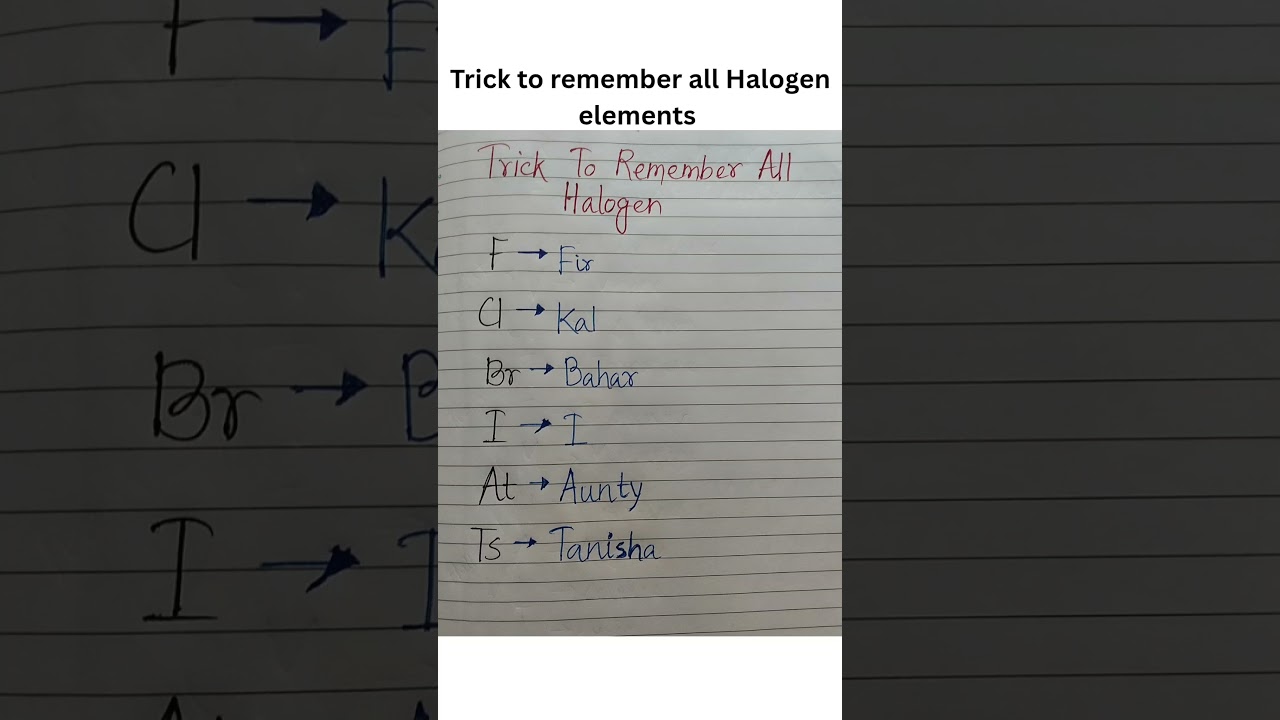 Trick to remember all Halogen
elements
Trick To Remember All
Halogen
F → Fir
Cl → Kal
Br → Bahar
I → I
At → Aunty
Ts → Tanisha